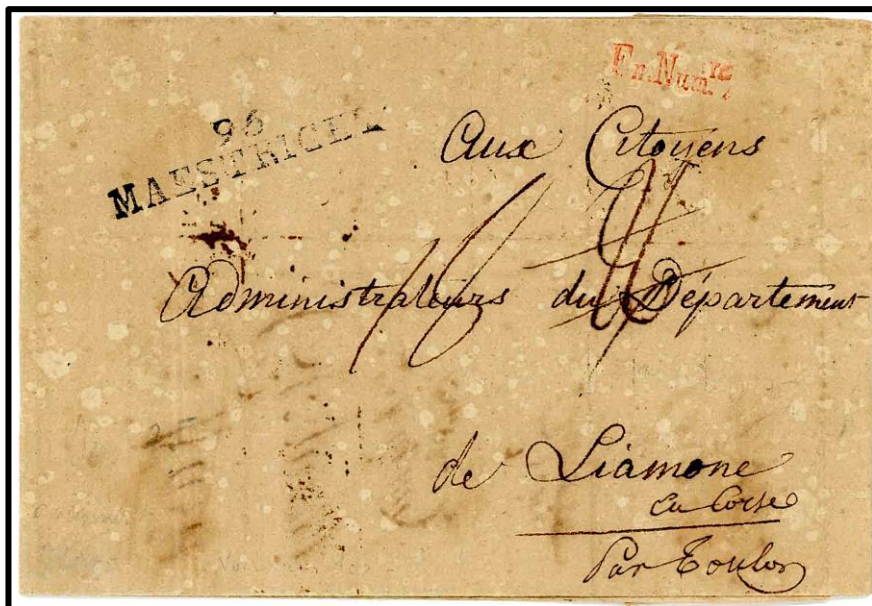 En Num.re
96
MAESTRICHT
Aux Citoyens
Administrateurs du Département
de Liamone
en Corse
Par Toulon